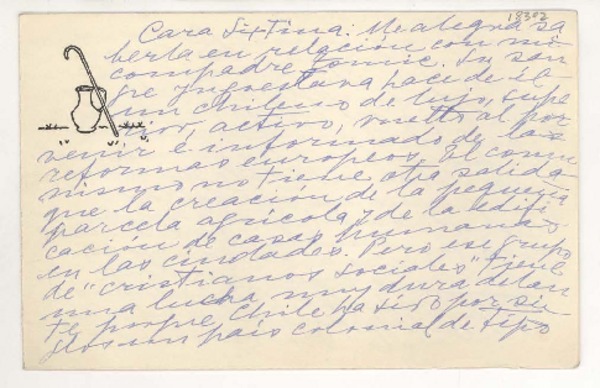 18302
Cara Sixtina: Me alegra sa
berla en relación con mi
compadre Tomic. Su san
gre yugoestava hace de él
un chileno de lujo, supe
rior, activo, vuelto al por
venir é informado de las
reformas europeas. El comu
nismo no tiene otra salida
que la creación de la pequeña
parcela agrícola y de la edifi
cación de casas humanas
en las ciudades. Pero ese grupo
de "cristianos sociales" tiene
una lucha muy dura delan
te porque Chile ha sido por si
glos un país colonial de tipo